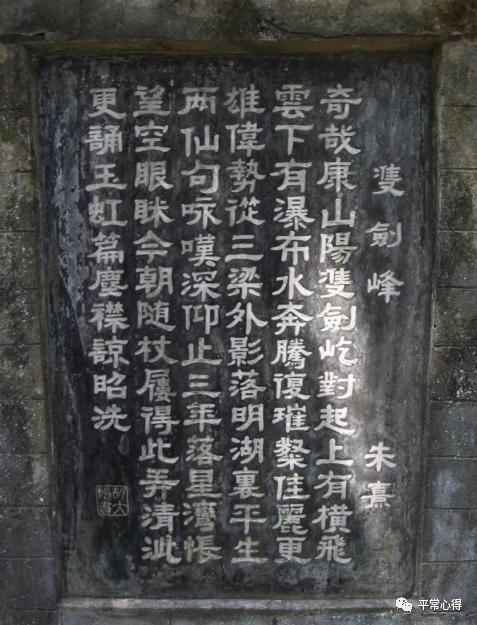 雙劍峰 朱熹
奇哉康山陽雙劍屹對起上有橫飛
雲下有瀑布水奔騰復璀璨佳麗更
雄偉勢從三梁外影落明湖裏平生
两仙句咏嘆深仰止三年落星灣悵
望空眼眯今朝随杖屨得此弄清泚
更誦玉虹篇塵襟諒昭洗
平常心得